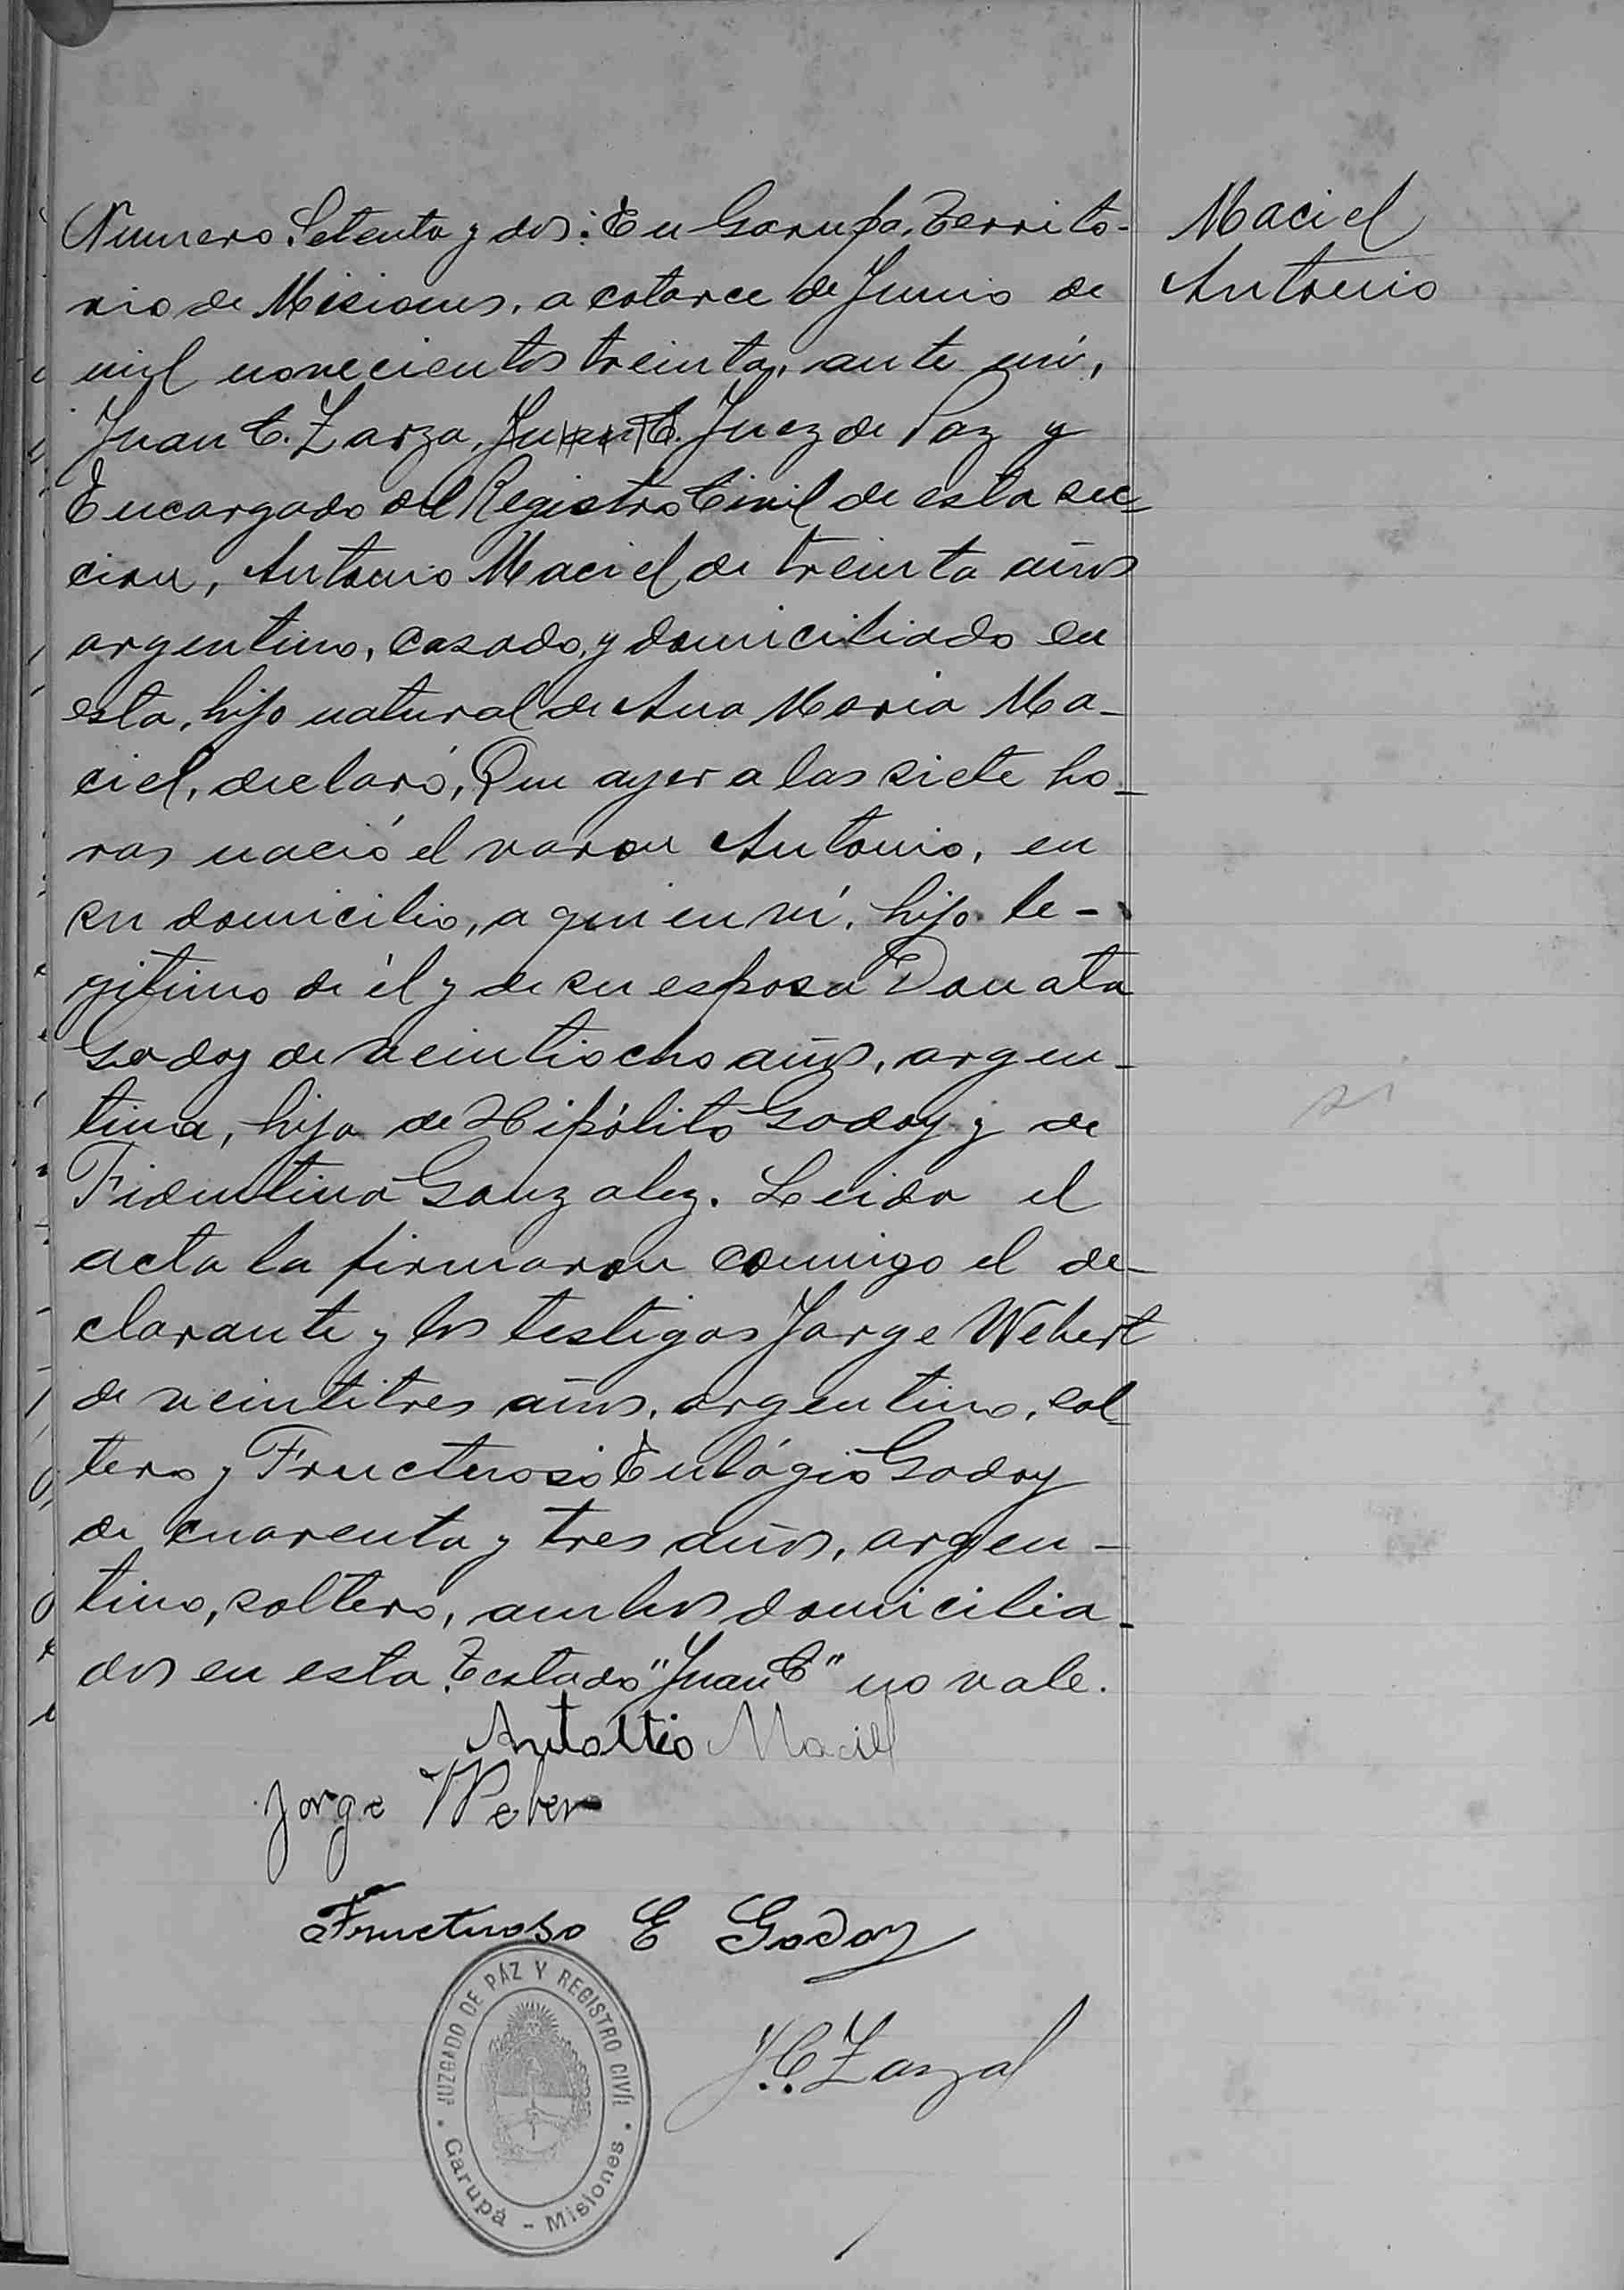 Maciel
Antonio
Numero Setenta y dos: En Garupa, Territo-
rio de Misiones, a catorce de Junio de
mil novecientos treinta, ante mí,
Juan C. Zarza, Juan C. Juez de Paz y
Encargado del Registro Civil de esta sec-
cion, Antonio Maciel de treinta años
argentino, casado, y domiciliado en
esta, hijo natural de Ana Maria Ma-
ciel, declaró, Que ayer a las siete ho-
ras nació el varon Antonio, en
su domicilio, a quien ví, hijo le-
gitimo de él y de su esposa Donata
Godoy de veintiocho años, argen-
tina, hija de Hipólito Godoy y de
Fidentina Gonzalez. Leida el
acta la firmaron comigo el de-
clarante y los testigos Jorge Webert
de veintitres años, argentino, sol-
tero y Fructuoso Eulógio Godoy
de cuarenta y tres años, argen-
tino, soltero, ambos domicilia-
dos en esta. Testado "Juan C" no vale.
Antonio Maciel
Jorge Weber
Fructuoso E Godoy
J.C. Zarza
JUZGADO DE PAZ Y REGISTRO CIVIL
Garupá - Misiones